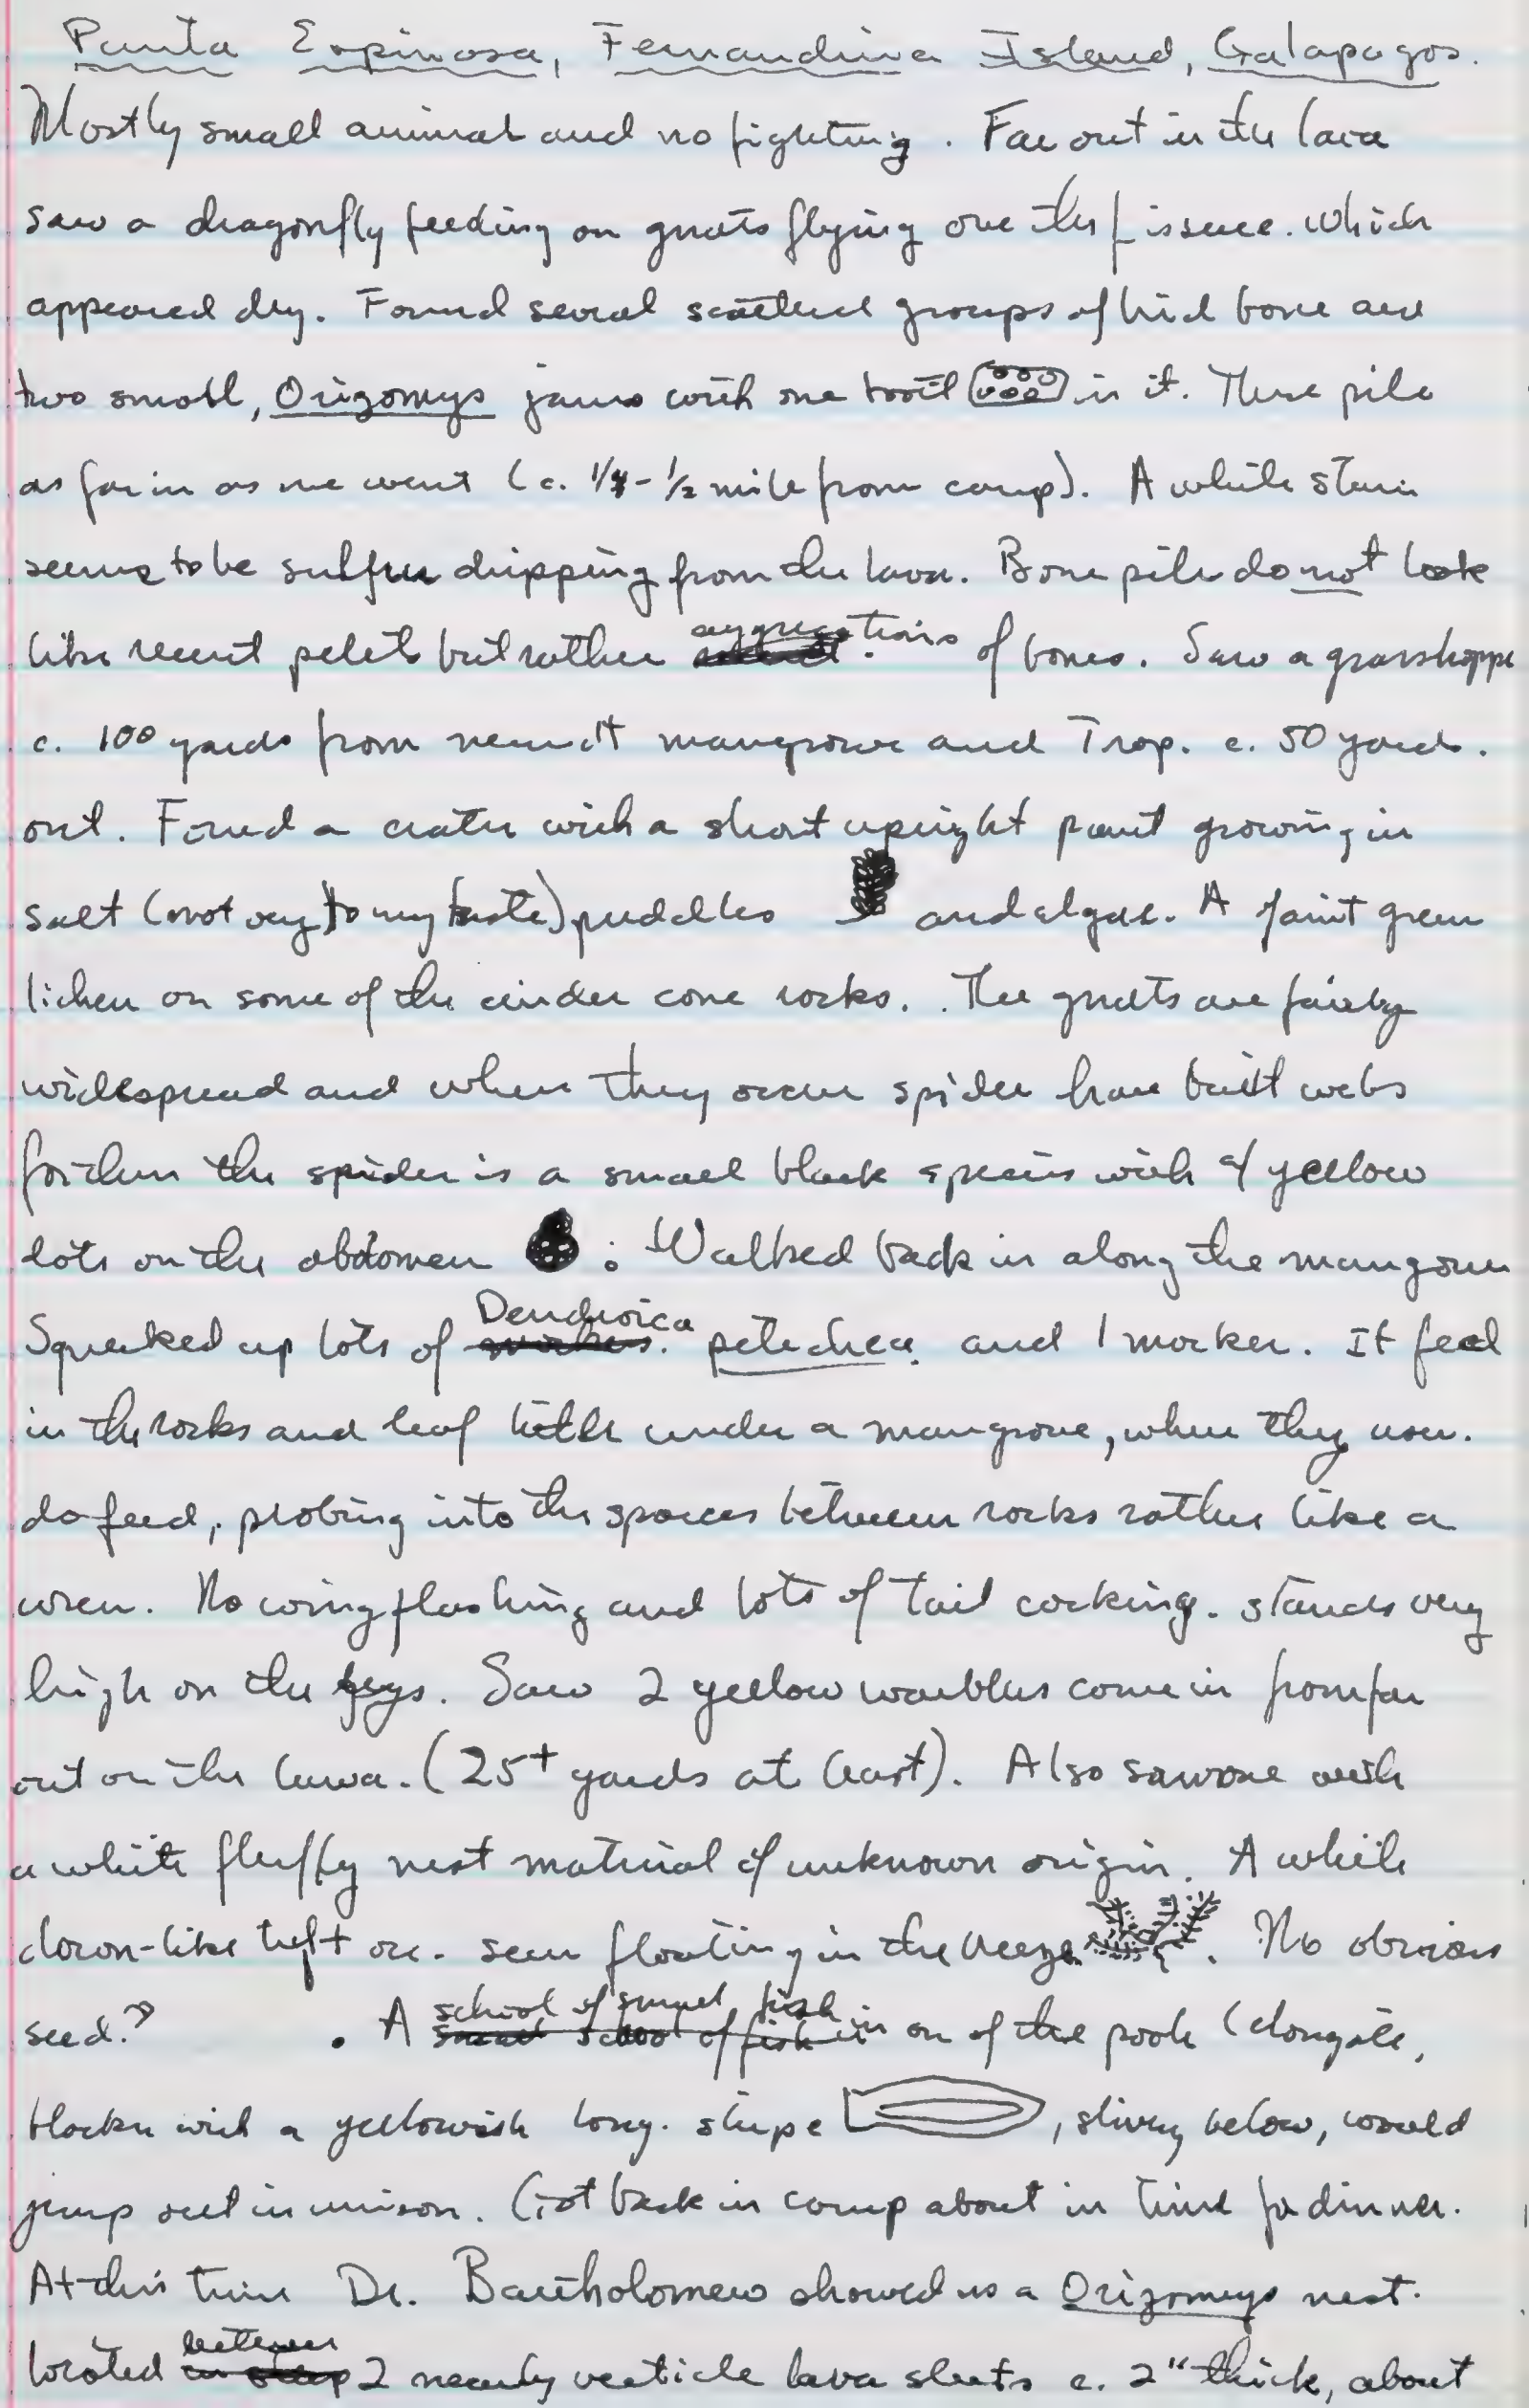 Punta Espinosa, Fernandina Island, Galapagos.
Mostly small animal and no fighting. Far out in the lava
saw a dragonfly feeding on gnats flying over the fissure. which
appeared dry. Found several scattered groups of bird bone and
two small, Orizomys jaws with one tooth in it. These pile
as far in as we went (c. 1/4-1/2 mile from camp). A white stain
seems to be sulfur dripping from the lava. Bone pile do not look
like recent pelets but rather aggregations of bones. Saw a grasshopper
c. 100 yards from nearest mangrove and Trop. c. 50 yards.
out. Found a crater with a short upright plant growing in
salt (not very to my taste) puddles and algae. A faint green
lichen on some of the cinder cone rocks. The gnats are fairly
widespread and where they occur spider have built webs
for them the spider is a small black species with 4 yellow
dots on the abdomen. Walked back in along the mangrove
Squeaked up lots of Dendroica petechea and 1 mocker. It feed
in the rocks and leaf litter under a mangrove, where they
do feed, probing into the spaces between rocks rather like a
wren. No wing flashing and lots of tail cocking. stands very
high on the legs. Saw 2 yellow warblers come in from far
out on the lava. (25+ yards at least). Also saw one with
a white fluffy nest material of unknown origin. A white
down-like tuft occ. seen floating in the breeze. No obvious
seed.? . A school of small fish in on of the pools (elongate,
blackn with a yellowish long. stripe, silvery below, would
jump out in unison. Got back in camp about in time for dinner.
At this time Dr. Bartholomew showed us a Orizomys nest.
located between 2 nearly verticle lava sheets c. 2" thick, about